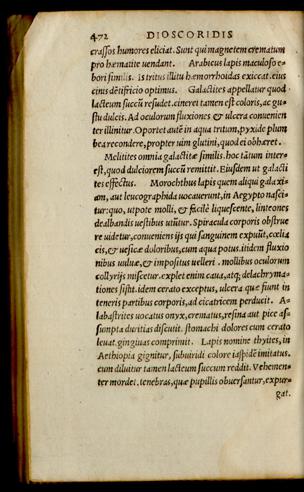 472 DIOSCORIDIS
crassos humores eliciat. Sunt qui magnetem crematum
pro hæmatite uendant. Arabicus lapis maculoso e-
bori similis. Is tritus illitu hæmorrhoidas exiccat. eius
cinis dētifricio optimus. Galactites appellatur quod
lacteum succū resudet. cinerei tamen est coloris, ac gu-
stu dulcis. Ad oculorum fluxiones & ulcera convenien
ter illinitur. Oportet autē in aqua tritum, pyxide plum
bea recondere, propter uim glutini, quod ei obhæret.
Melitites omnia galactitæ similis. hoc tātum inter-
est, quod dulciorem succū remittit. Eiusdem ut galacti
tes effectus. Morochthus lapis quem aliqui galaxi-
am, aut leucographida uocauerunt, in Aegypto nasci-
tur: quo, utpote molli, & facilè liquescente, linteones
dealbandis uestibus utūtur. Spiracula corporis obstrue
re uidetur, conueniens ijs qui sanguinem expuūt, cœlia
cis, & uesicæ doloribus, cum aqua potus. itidem fluxio
nibus uuluæ, & impositus uelleri. mollibus oculorum
collyrijs miscetur. explet enim caua, atq; delachryma-
tiones sistit. idem cerato exceptus, ulcera quæ fiunt in
teneris partibus corporis, ad cicatricem perducit. A-
labastrites uocatus onyx, crematus, resina aut pice as-
sumpta duritias discutit. stomachi dolores cum cerato
leuat. gingiuas comprimit. Lapis nomine thyites, in
Aethiopia gignitur, subuiridi colore iaspidē imitatus.
cum diluitur tamen lacteum succum reddit. Vehemen-
ter mordet. tenebras, quæ pupillis obuersantur, expur-
gat.